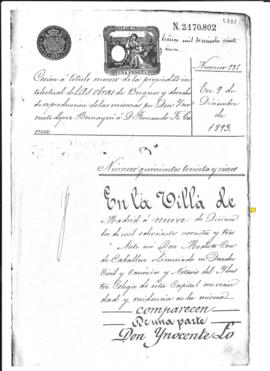 N. 2170.802
Número 535
Cesion á título oneroso de la propiedad in-
telectual de 151 obras de Becquer y derecho
de reproduccion de las mismas por Don Yno-
cente Lopez Bernagosi á D. Fernando Fé
En 9 de
Diciembre
de
1893.
Número quinientos treinta y cinco
En la Villa de
Madrid á nueve de Diciem
bre de mil ochocientos noventa y tres
Ante mi Don Modesto Con
de Caballero Licenciado en Derecho
Civil y Canónico y Notario del Ilus
tre Colegio de esta Capital con vecin
dad y residencia en la misma
comparecen
De una parte
Don Ynocente Ló